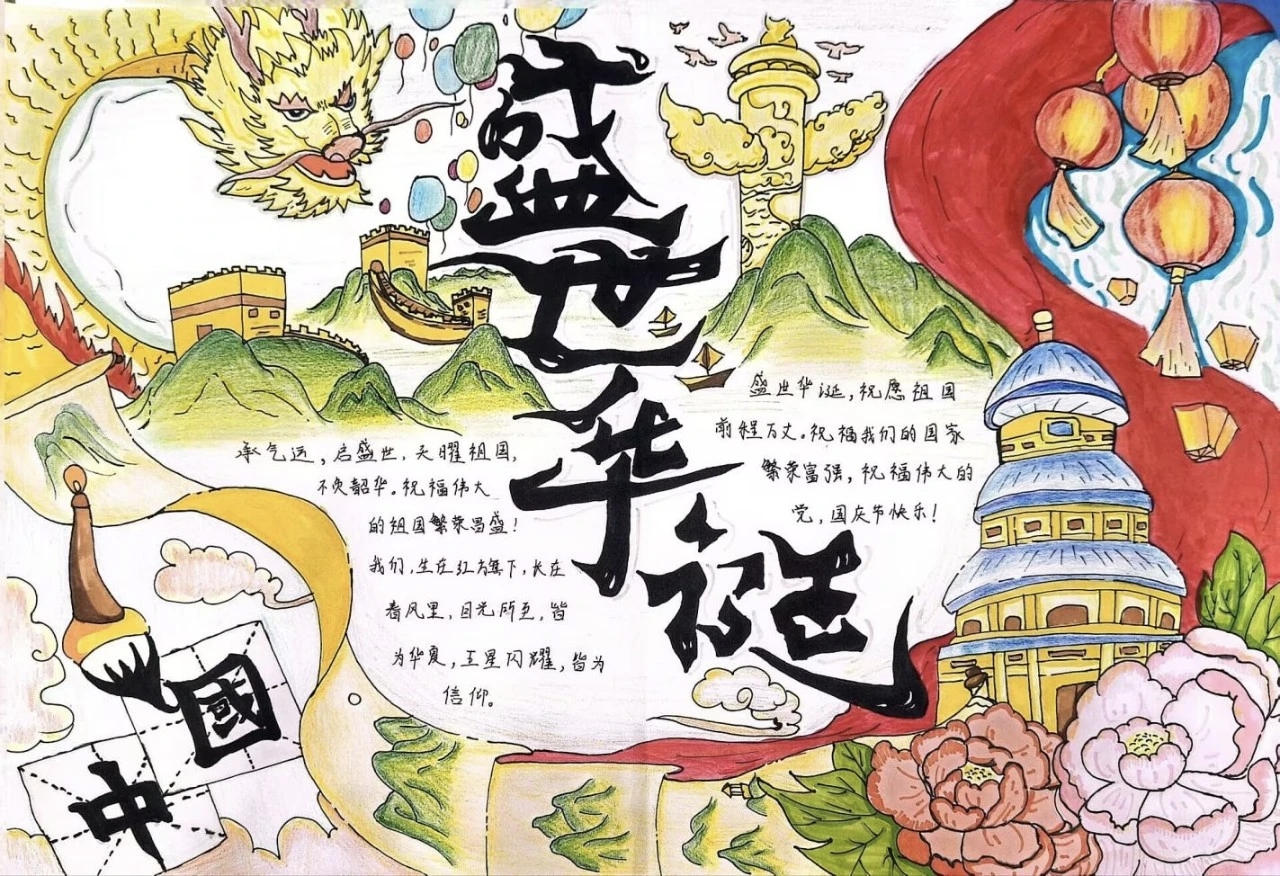 盛世华诞
承气运，启盛世，天曜祖国，
不负韶华。祝福伟大
的祖国繁荣昌盛！
我们，生在红旗下，长在
春风里，目光所至，皆
为华夏，五星闪耀，皆为
信仰。
盛世华诞，祝愿祖国
前程万丈。祝福我们的国家
繁荣富强，祝福伟大的
党，国庆节快乐！
中國